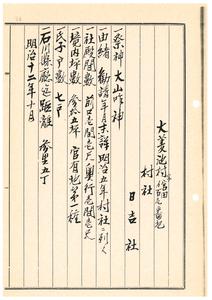 大菱池村
村社
日吉社
一祭神 大山咋神
一由緒 勧請年月未詳明治五年村社ニ列ス
社殿間数 前口壱間壱尺奥行壱間壱尺
一境内坪数 官有地第一種
一氏子戸数 七戸
一石川県庁迄距離 参里五丁
明治十二年十月